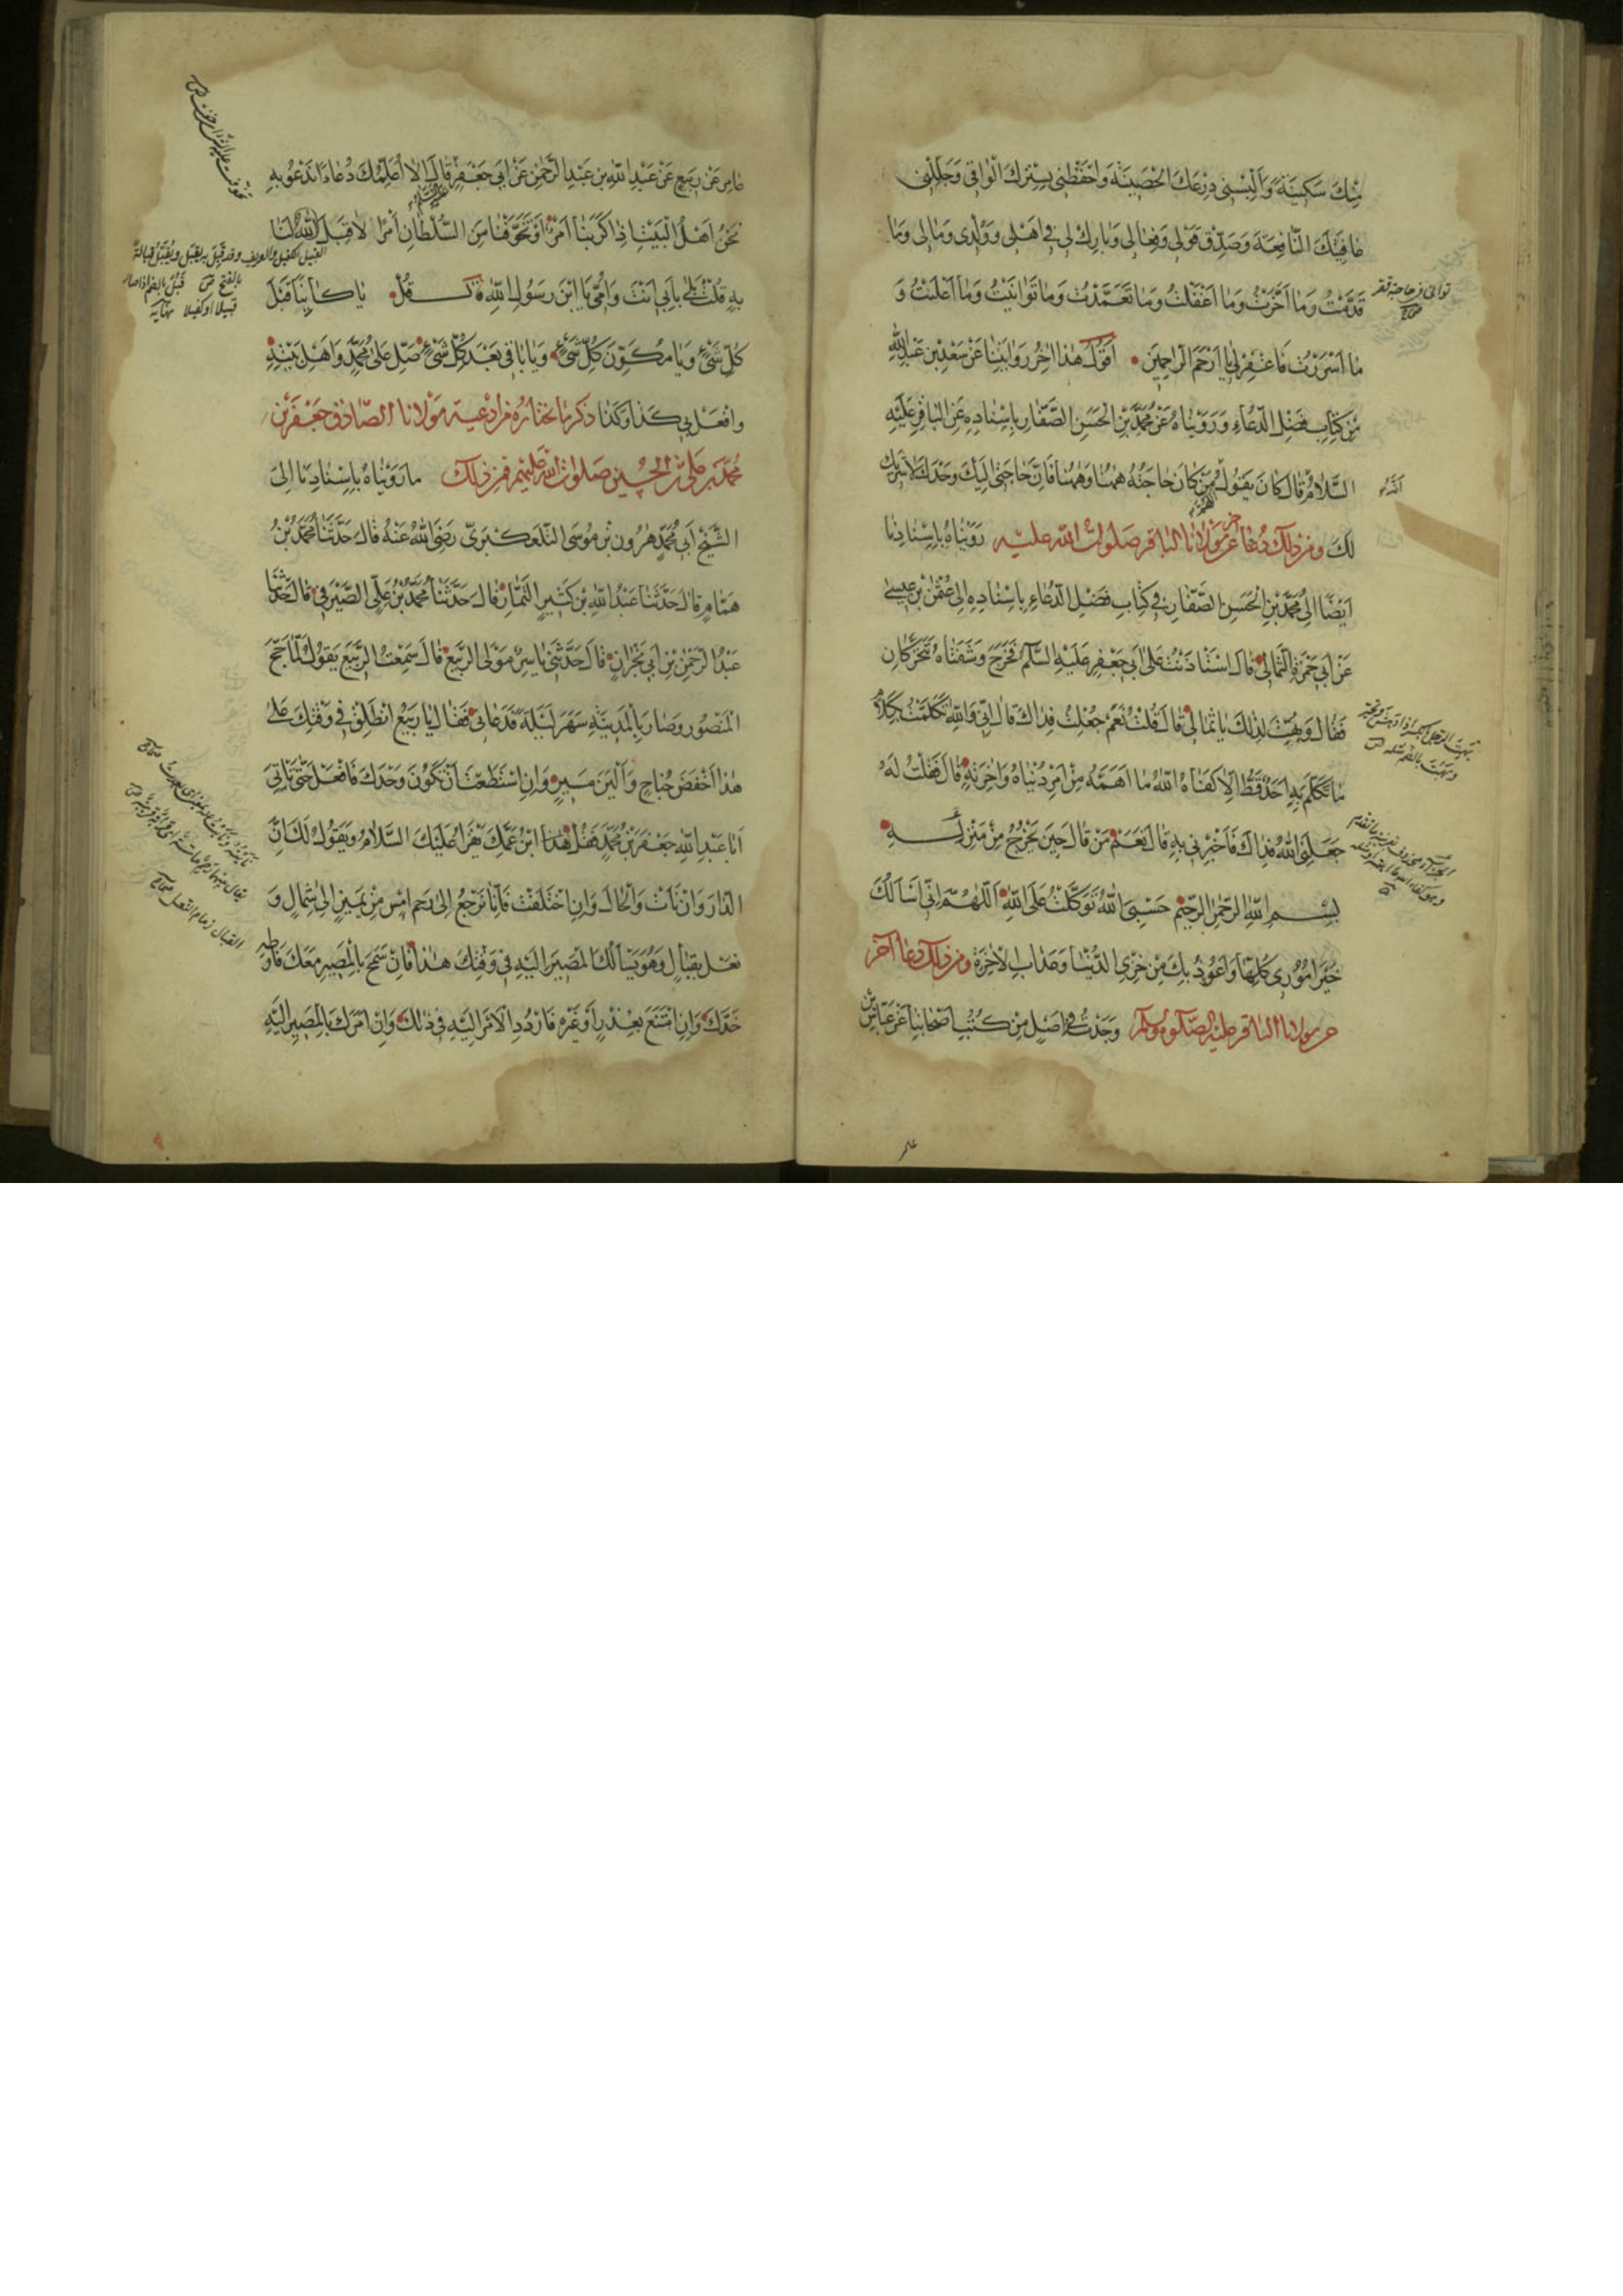 مِنْكَ سَكِينَةً وَاَلْبِسْنى دِرْعَكَ الْحَصِينَةَ وَاحْفَظْنى بِسِتْرِكَ الْواقى وَجَلِّلْنى
عافِيَتَكَ النّافِعَةَ وَصَدِّقْ قَوْلى وَفِعالى وَبارِكْ لى فى اَهْلى وَوُلْدى وَمالى وَما
قَدَّمْتُ وَما اَخَّرْتُ وَما اَغْفَلْتُ وَما تَعَمَّدْتُ وَما تَوانَيْتُ وَما اَعْلَنْتُ وَ
ما اَسْرَرْتُ فَاغْفِرْ لى يا اَرْحَمَ الرّاحِمينَ اَقُولُ هٰذا اخِرُ رِوايَتِنا عَنْ سَعْدِ بْنِ عَبْدِ اللهِ
مِنْ كِتابِ فَضْلِ الدُّعاءِ وَرَوَيْناهُ عَنْ مُحَمَّدِ بْنِ الْحَسَنِ الصَّفّارِ بِاِسْنادِهِ عَنِ الْباقِرِ عَلَيْهِ
السَّلامُ قالَ كانَ يَقُولُ مَنْ كانَ حاجَتُهُ ههُنا وَههُنا فَاِنَّ حاجَتى اِلَيْكَ وَحْدَكَ لا شَرِيكَ
لَكَ ومن ذلك دُعاء اخر عن مولانا الباقر صلوات الله عليه رَوَيْناهُ بِاِسْنادِنا
اَيْضًا اِلى مُحَمَّدِ بْنِ الْحَسَنِ الصَّفّارِ فى كِتابِ فَضْلِ الدُّعاءِ بِاِسْنادِهِ اِلى عُثْمٰنَ بْنِ عِيسى
عَنْ اَبى حَمْزَةَ الثُّمالِىِّ قالَ اسْتَأْذَنْتُ عَلى اَبى جَعْفَرٍ عَلَيْهِ السَّلامُ فَخَرَجَ وَشَفَتاهُ تَتَحَرَّكانِ
فَقالَ وَبَهُتَّ لِذلِكَ يا ثُمالِىُّ قالَ قُلْتُ نَعَمْ جُعِلْتُ فِداكَ قالَ اِنّى وَاللهِ تَكَلَّمْتُ بِكَلامٍ
ما تَكَلَّمَ بِهِ اَحَدٌ قَطُّ اِلّا كَفاهُ اللهُ ما اَهَمَّهُ مِنْ اَمْرِ دُنْياهُ وَاخِرَتِهِ قالَ فَقُلْتُ لَهُ
جَعَلَنِىَ اللهُ فِداكَ فَاَخْبِرْنى بِهِ قالَ نَعَمْ مَنْ قالَ حينَ يَخْرُجُ مِنْ مَنْزِلِهِ
بِسْمِ اللهِ الرَّحْمٰنِ الرَّحيمِ حَسْبِىَ اللهُ تَوَكَّلْتُ عَلَى اللهِ اَللّهُمَّ اِنّى اَسْاَلُكَ
خَيْرَ اُمُورى كُلِّها وَاَعُوذُ بِكَ مِنْ خِزْىِ الدُّنْيا وَعَذابِ الْاخِرَةِ ومن ذلك دعاء آخر
عن مولانا الباقر عليه الصلوة والسلم وَجَدْتُ فى اَصْلٍ مِنْ كُتُبِ اَصْحابِنا عَنْ عَيّاشِ
توانى فى حاجته قصّر
صحاح
اللّهم
بهت الرجل بالكسر اذا دهش وتحيّر
وبهت بالضم مثله ص
عامِرٍ عَنْ رَبيعٍ عَنْ عَبْدِ اللهِ بْنِ عَبْدِ الرَّحْمٰنِ عَنْ اَبى جَعْفَرٍ عليه السلام قالَ اَلا اُعَلِّمُكَ دُعاءً نَدْعُو بِهِ
نَحْنُ اَهْلُ الْبَيْتِ اِذا كَرَبَنا اَمْرٌ اَوْ تَخَوَّفْنا مِنَ السُّلْطانِ اَمْرًا لا قِبَلَ لَنا
بِهِ قُلْتُ بَلى بِاَبى اَنْتَ وَاُمّى يَا ابْنَ رَسُولِ اللهِ قالَ قُلْ يا كائِنًا قَبْلَ
كُلِّ شَىْءٍ وَيا مُكَوِّنَ كُلِّ شَىْءٍ وَيا باقى بَعْدَ كُلِّ شَىْءٍ صَلِّ عَلى مُحَمَّدٍ وَاَهْلِ بَيْتِهِ
وَافْعَلْ بى كَذا وَكَذا ذكر ما نختاره من ادعية مولانا الصّادق جعفر بن
محمّد بن على بن الحسين صلوات الله عليهم فمن ذلك ما رَوَيْناهُ بِاِسْنادِنا اِلىَ
الشَّيْخِ اَبى مُحَمَّدٍ هٰرُونَ بْنِ مُوسَى التَّلَّعُكْبَرِىِّ رَضِىَ اللهُ عَنْهُ قالَ حَدَّثَنا مُحَمَّدُ بْنُ
هَمّامٍ قالَ حَدَّثَنا عَبْدُ اللهِ بْنُ كَثيرٍ التَّمّارُ قالَ حَدَّثَنا مُحَمَّدُ بْنُ عَلِىٍّ الصَّيْرَفىُّ قالَ حَدَّثَنا
عَبْدُ الرَّحْمٰنِ بْنُ اَبى نَجْرانَ قالَ حَدَّثَنى ياسِرٌ مَوْلَى الرَّبيعِ قالَ سَمِعْتُ الرَّبيعَ يَقُولُ لَمّا حَجَّ
الْمَنْصُورُ وَصارَ بِالْمَدينَةِ سَهَرَ لَيْلَةً فَدَعانى فَقالَ يا رَبيعُ انْطَلِقْ فى وَقْتِكَ عَلى
هٰذا اَخْفَضَ جَناحٍ وَاَلْيَنَ مَسيرٍ وَاِنِ اسْتَطَعْتَ اَنْ تَكُونَ وَحْدَكَ فَافْعَلْ حَتّى تَأْتِىَ
اَبا عَبْدِ اللهِ جَعْفَرَ بْنَ مُحَمَّدٍ فَقُلْ هٰذا ابْنُ عَمِّكَ يَقْرَاُ عَلَيْكَ السَّلامَ وَيَقُولُ لَكَ اِنَّ
الدّارَ وَاِنْ نَأَتْ وَالْحالَ وَاِنِ اخْتَلَفَتْ فَاِنّا نَرْجِعُ اِلى رَحِمٍ اَمَسَّ مِنْ يَمينٍ اِلى شِمالٍ وَ
نَعْلٍ بِقِبالٍ وَهُوَ يَسْاَلُكَ الْمَصيرَ اِلَيْهِ فى وَقْتِكَ هٰذا فَاِنْ سَمَحَ بِالْمَصيرِ مَعَكَ فَاَوْطِهِ
خَدَّكَ وَاِنِ امْتَنَعَ بِعُذْرٍ اَوْ غَيْرِهِ فَارْدُدِ الْاَمْرَ اِلَيْهِ فى ذلِكَ وَاِنْ اَمَرَكَ بِالْمَصيرِ اِلَيْهِ
القبال زمام النعل صحاح